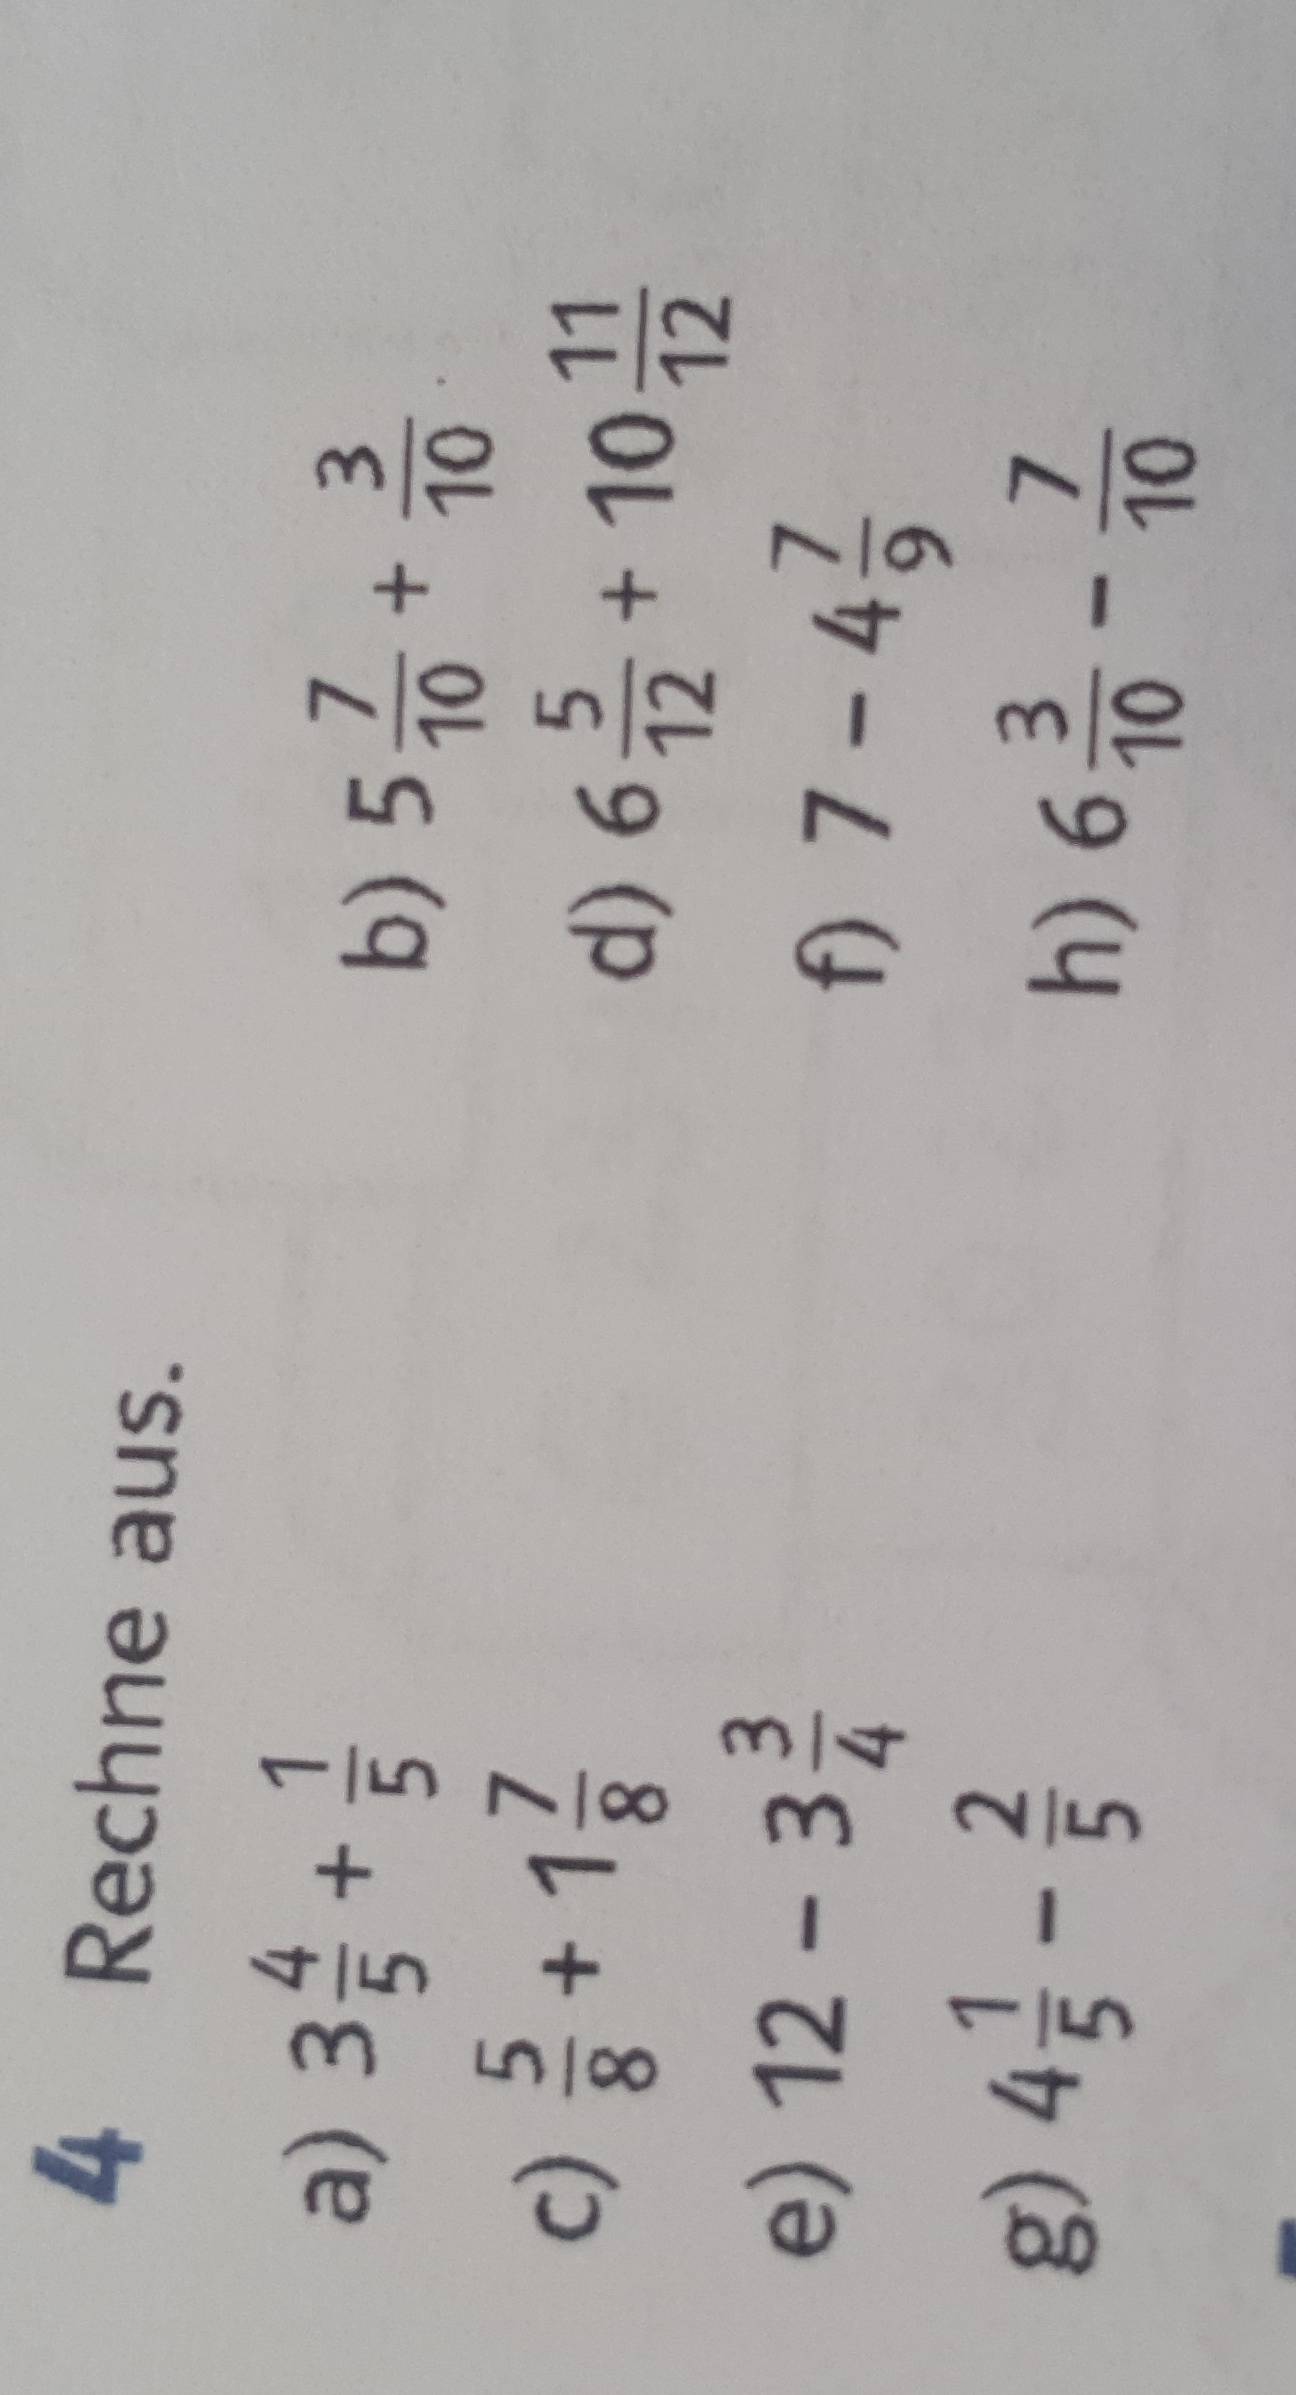 4 Rechne aus.
a) 3 4/5 + 1/5 b) 5 7/10 + 3/10
c) 5/8 + 1 7/8 d) 6 5/12 + 10 11/12
e) 12 - 3 3/4 f) 7 - 4 7/9
g) 4 1/5 - 2/5 h) 6 3/10 - 7/10